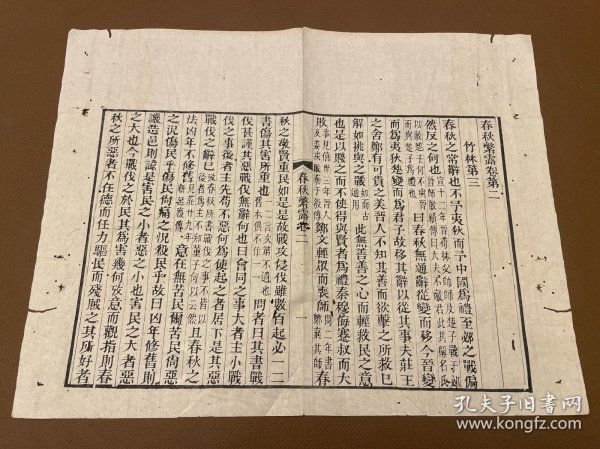 春秋繁露卷第二
竹林第三
春秋之常辭也不予夷狄而予中國為禮至邲之戰偏
然反之何也
曰春秋無通辭從變而移今晉變
而為夷狄楚變而為君子故移其辭以從其事夫莊王
之舍鄭有可貴之美晉人不知其善而欲擊之所救已
解如挑與之戰此無善善之心而輕救民之意
也是以賤之而不使得與賢者為禮秦穆侮蹇叔而大
敗鄭文輕眾而喪師春
春秋繁露卷二
一
秋之敬賢重民如是是故戰攻侵伐雖數百起必一二
書傷其害所重也問者曰其書戰
伐甚謹其惡戰伐無辭何也曰會同之事大者主小戰
伐之事後者主先苟不惡何為使起之者居下是其惡
戰伐之辭已且春秋之
法凶年不修舊意在無苦民爾苦民尚惡
之況傷民乎傷民尚痛之況殺民乎故曰凶年修舊則
譏造邑則諱是害民之小者惡之小也害民之大者惡
之大也今戰伐之於民其為害幾何攷意而觀指則春
秋之所惡者不任德而任力驅民而殘賊之其所好者
孔夫子旧书网